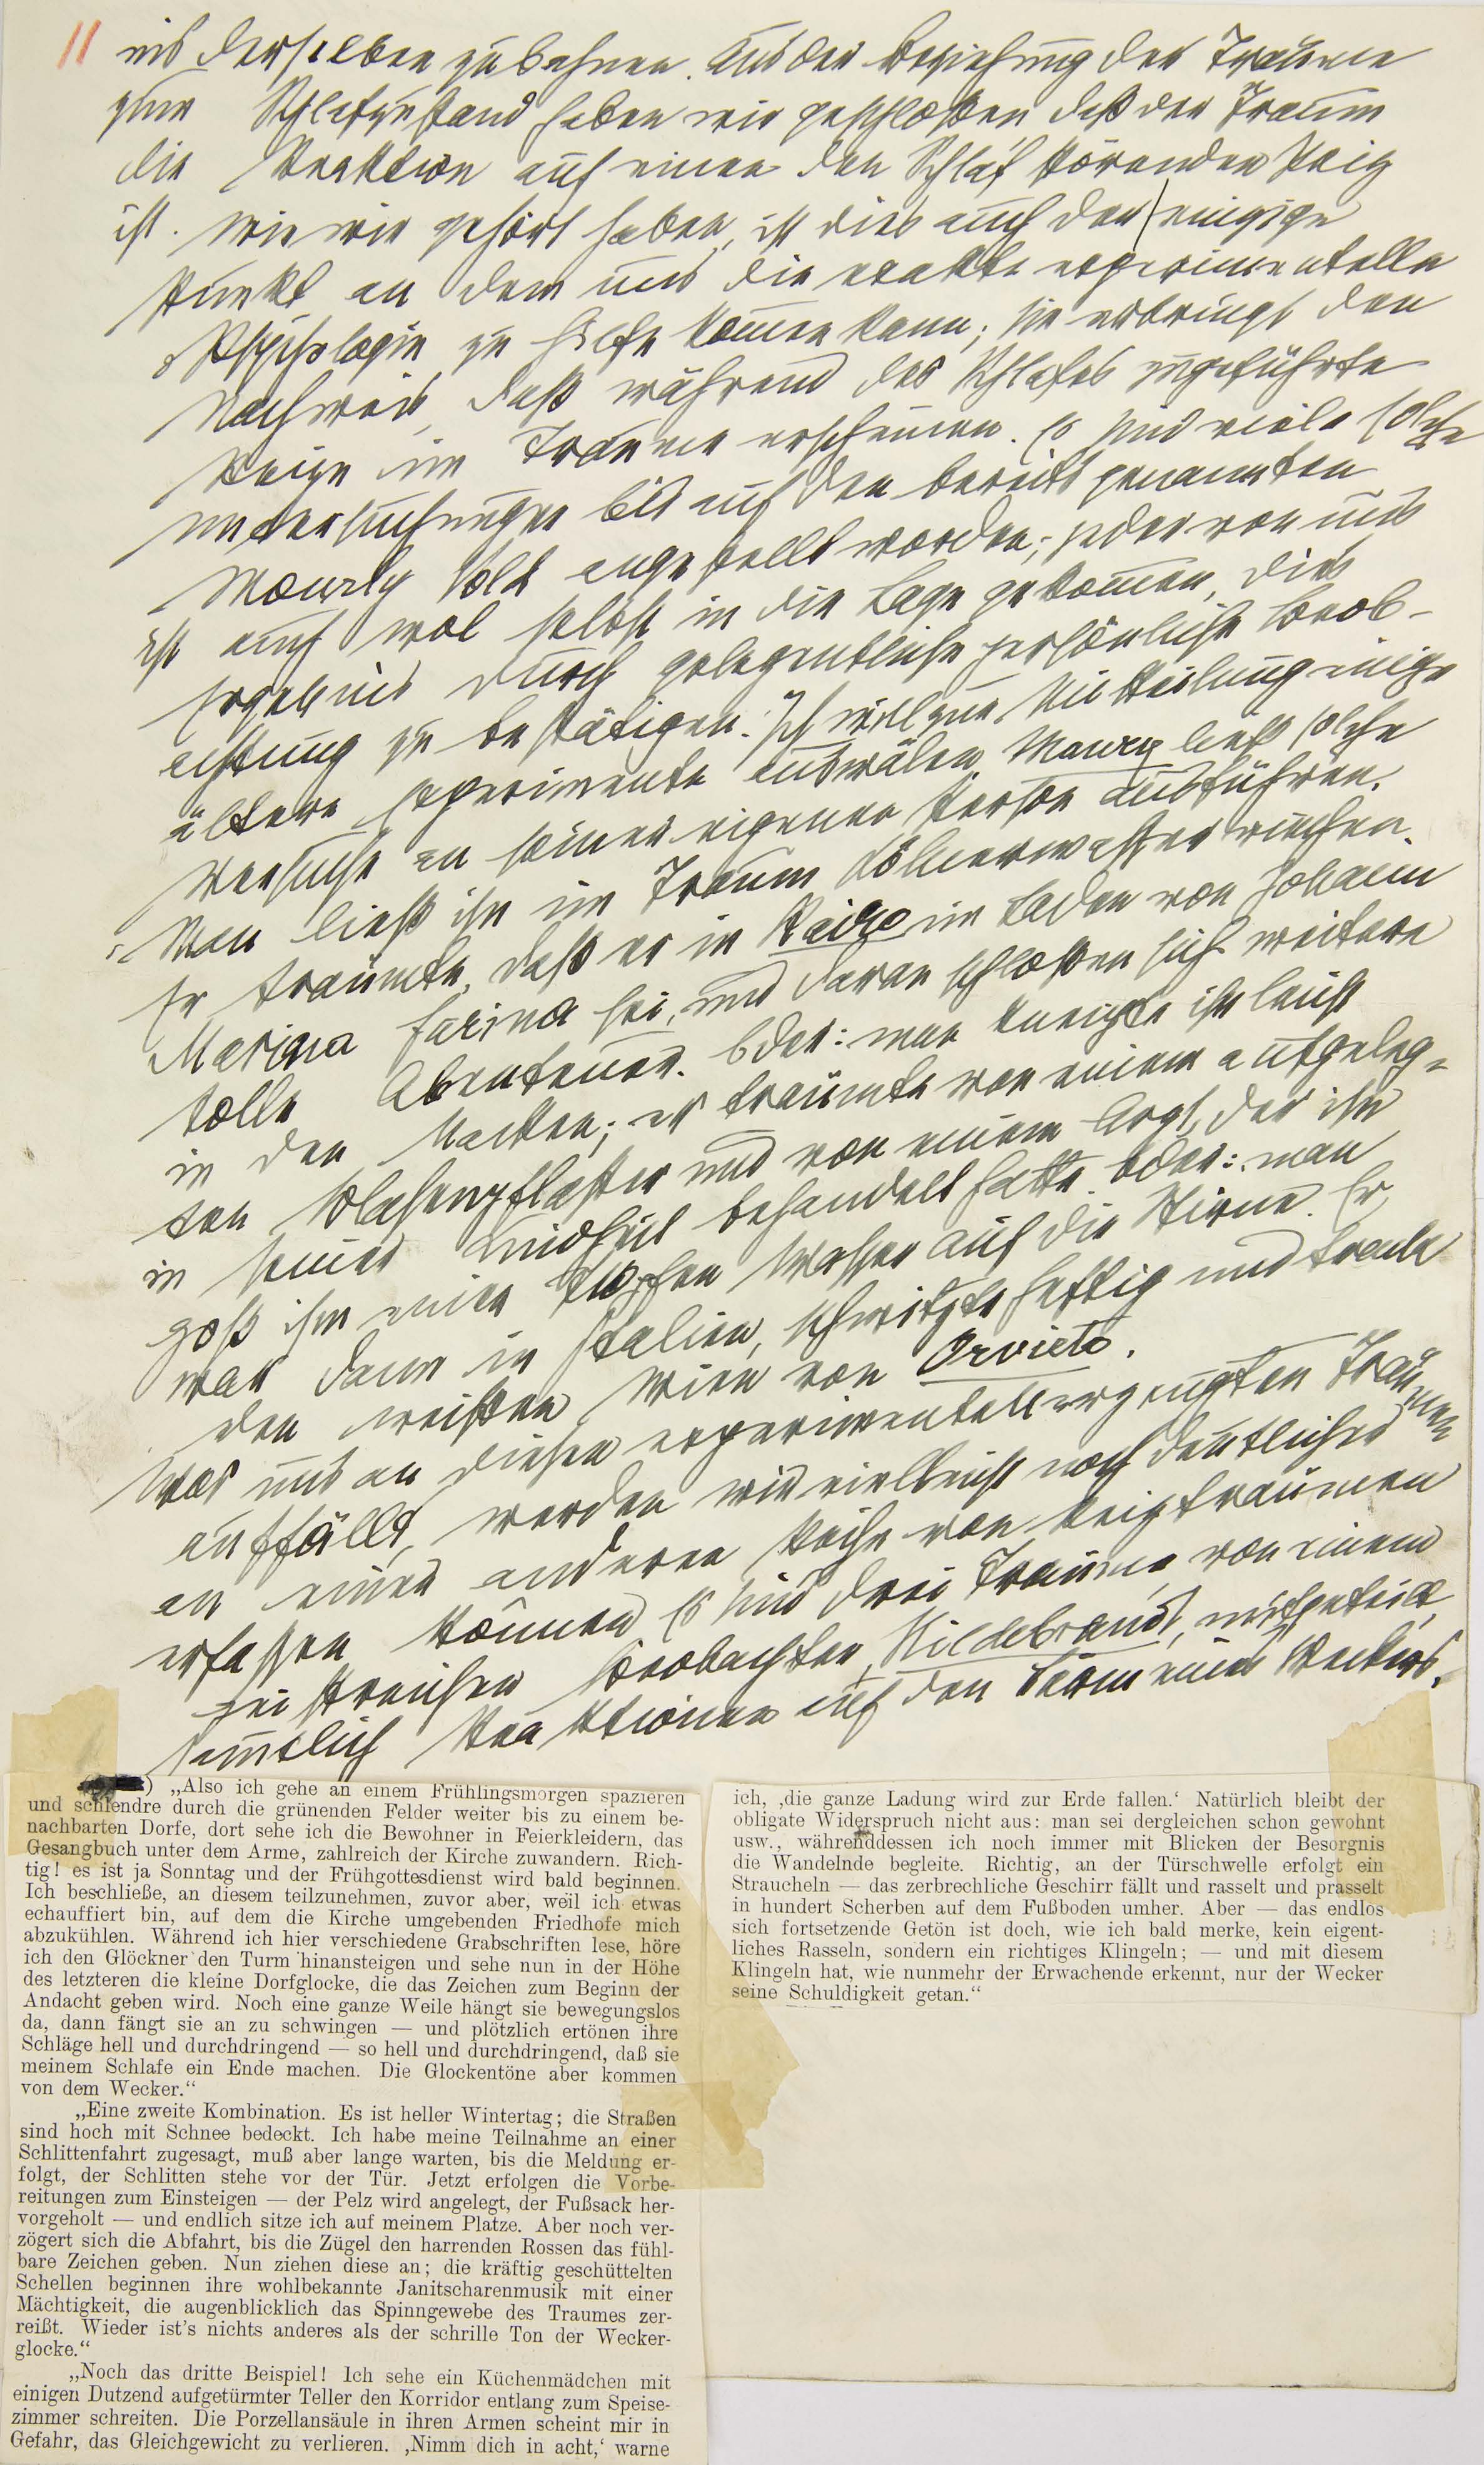 11
nis derselben zu bahnen. Aus der Beziehung der Träume
zum Schlafzustand haben wir geschloßen daß der Traum
die Reaktion auf einen den Schlaf störenden Reiz
ist. Wie wir gehört haben, ist dies auch der einzige
Punkt an dem uns die exakte experimentelle
Psychologie zu Hilfe kommen kann; sie erbringt den
Nachweis, daß während des Schlafes zugeführte
Reize im Traume erscheinen. Es sind viele solche
Untersuchungen bis auf den bereits genannten
Mourly Vold angestellt worden; jeder von uns
ist auch wol selbst in die Lage gekommen, dies
Ergebnis durch gelegentliche persönliche Beob-
achtung zu bestätigen. Ich will zur Mitteilung einige
ältere Experimente auswälen. Maury ließ solche
Versuche an seiner eigenen Person ausführen.
Man ließ ihn im Traum Kölnerwasser riechen.
Er träumte, daß er in Kairo im Laden von Johann
Marina Farina sei, und daran schloßen sich weitere
tolle Abenteuer. Oder: man kneipte ihn leicht
in den Nacken; er träumte von einem aufgeleg-
ten Blasenpflaster und von einem Arzt, der ihn
in seiner Kindheit behandelt hatte. Oder: man
goß ihm einen Tropfen Wasser auf die Stirne. Er
war dann in Italien, schwitzte heftig und trank
den weißen Wein von Orvieto.
Was uns an diesen experimentell erzeugten Träumen
auffällt, werden wir vielleicht noch deutlicher
an einer anderen Reihe von Reizträumen
erfassen können. Es sind drei Träume, von einem
geistreichen Beobachter, Hildebrandt, mitgeteilt,
sämtlich Reaktionen auf den Lärm eines Weckers.
) „Also ich gehe an einem Frühlingsmorgen spazieren
und schlendre durch die grünenden Felder weiter bis zu einem be-
nachbarten Dorfe, dort sehe ich die Bewohner in Feierkleidern, das
Gesangbuch unter dem Arme, zahlreich der Kirche zuwandern. Rich-
tig! es ist ja Sonntag und der Frühgottesdienst wird bald beginnen.
Ich beschließe, an diesem teilzunehmen, zuvor aber, weil ich etwas
echauffiert bin, auf dem die Kirche umgebenden Friedhofe mich
abzukühlen. Während ich hier verschiedene Grabschriften lese, höre
ich den Glöckner den Turm hinansteigen und sehe nun in der Höhe
des letzteren die kleine Dorfglocke, die das Zeichen zum Beginn der
Andacht geben wird. Noch eine ganze Weile hängt sie bewegungslos
da, dann fängt sie an zu schwingen — und plötzlich ertönen ihre
Schläge hell und durchdringend — so hell und durchdringend, daß sie
meinem Schlafe ein Ende machen. Die Glockentöne aber kommen
von dem Wecker.“
„Eine zweite Kombination. Es ist heller Wintertag; die Straßen
sind hoch mit Schnee bedeckt. Ich habe meine Teilnahme an einer
Schlittenfahrt zugesagt, muß aber lange warten, bis die Meldung er-
folgt, der Schlitten stehe vor der Tür. Jetzt erfolgen die Vorbe-
reitungen zum Einsteigen — der Pelz wird angelegt, der Fußsack her-
vorgeholt — und endlich sitze ich auf meinem Platze. Aber noch ver-
zögert sich die Abfahrt, bis die Zügel den harrenden Rossen das fühl-
bare Zeichen geben. Nun ziehen diese an; die kräftig geschüttelten
Schellen beginnen ihre wohlbekannte Janitscharenmusik mit einer
Mächtigkeit, die augenblicklich das Spinngewebe des Traumes zer-
reißt. Wieder ist's nichts anderes als der schrille Ton der Wecker-
glocke.“
„Noch das dritte Beispiel! Ich sehe ein Küchenmädchen mit
einigen Dutzend aufgetürmter Teller den Korridor entlang zum Speise-
zimmer schreiten. Die Porzellansäule in ihren Armen scheint mir in
Gefahr, das Gleichgewicht zu verlieren. ‚Nimm dich in acht,‘ warne
ich, ‚die ganze Ladung wird zur Erde fallen.‘ Natürlich bleibt der
obligate Widerspruch nicht aus: man sei dergleichen schon gewohnt
usw., währenddessen ich noch immer mit Blicken der Besorgnis
die Wandelnde begleite. Richtig, an der Türschwelle erfolgt ein
Straucheln — das zerbrechliche Geschirr fällt und rasselt und prasselt
in hundert Scherben auf dem Fußboden umher. Aber — das endlos
sich fortsetzende Getön ist doch, wie ich bald merke, kein eigent-
liches Rasseln, sondern ein richtiges Klingeln; — und mit diesem
Klingeln hat, wie nunmehr der Erwachende erkennt, nur der Wecker
seine Schuldigkeit getan.“